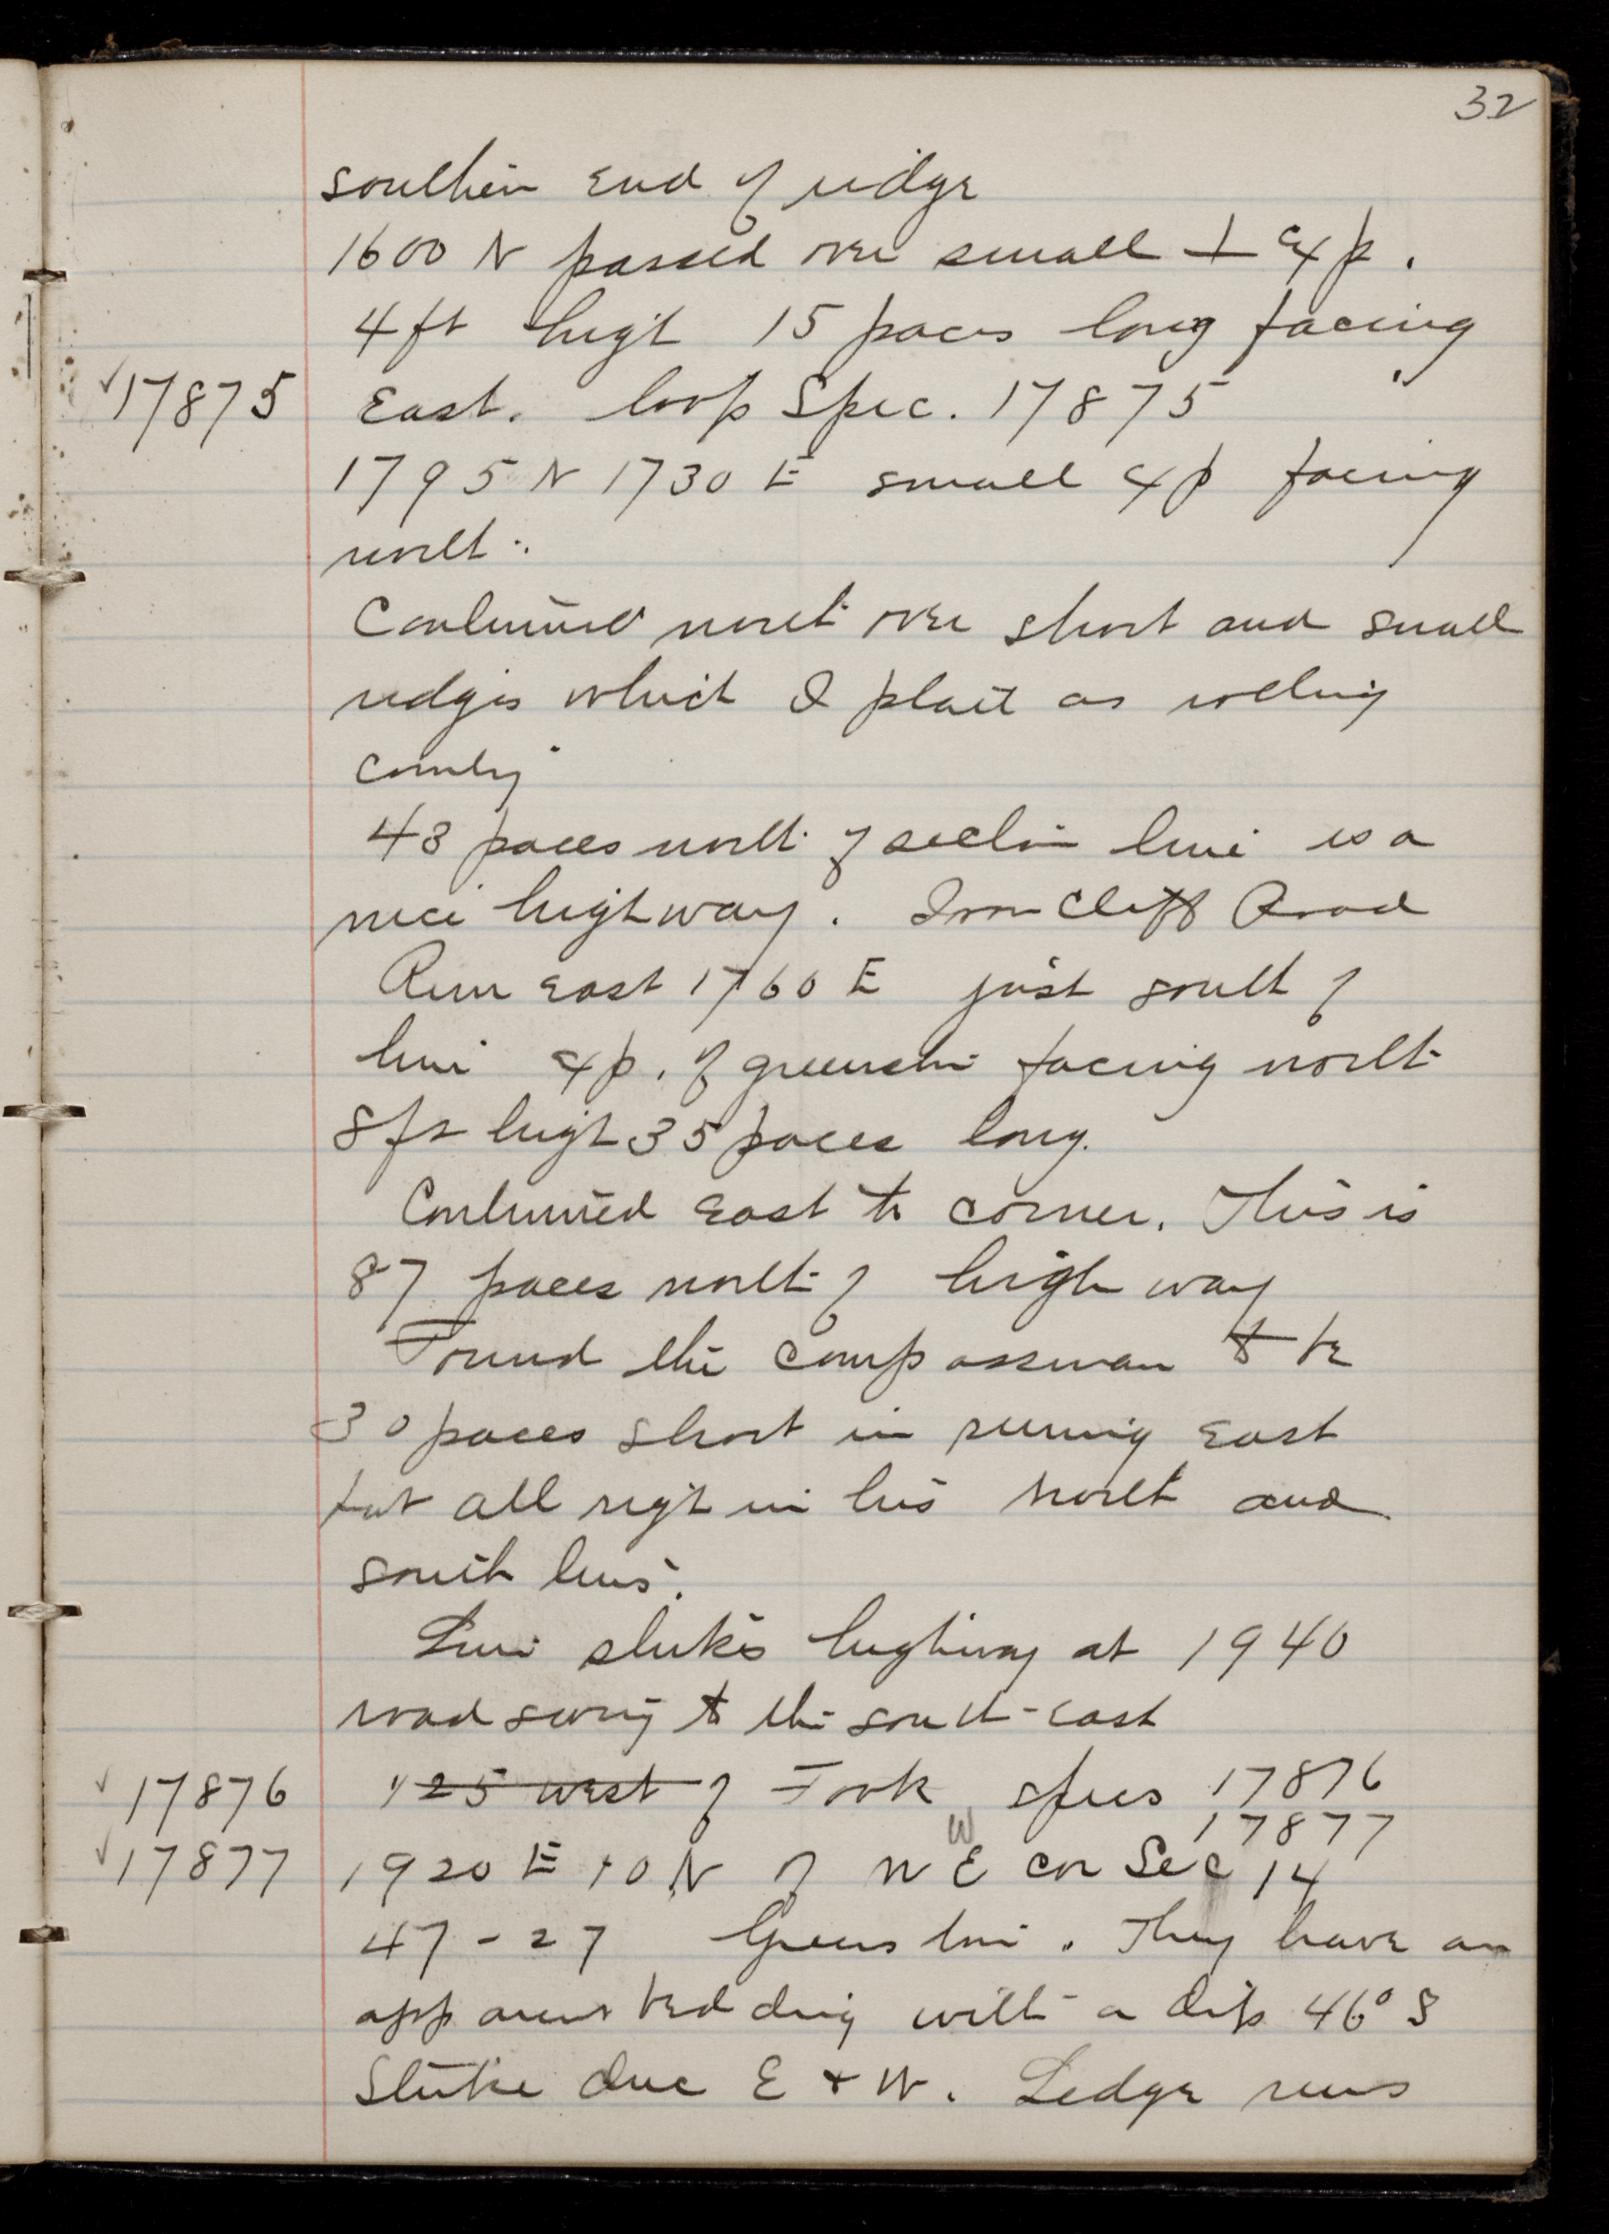 32
southern end of ridge
1600 N passed over small + exp.
4 ft high 15 paces long facing
✓17875 East. Took Spec. 17875
1795 N 1730 E small exp facing
north.
Continued north over short and small
ridges which I plait as rolling
country
48 paces north of section line is a
nice highway. Iron Cliff Road
Run east 1760 E just south of
line exp. of greenstn facing north
8 ft high 35 paces long.
Continued east to corner. This is
87 paces north of high way
Found the compassman to be
30 paces short in running east
but all right in his north and
south lines.
Line strikes highway at 1940
road swing to the south-east
✓17876 125 west of Took specs 17876
17877
✓17877 1920 E 10 N of N E cor Sec 14
W
47-27 Greenstone. They have an
apparent bedding with a dip 46° S
Strike due E + W. Ledge runs